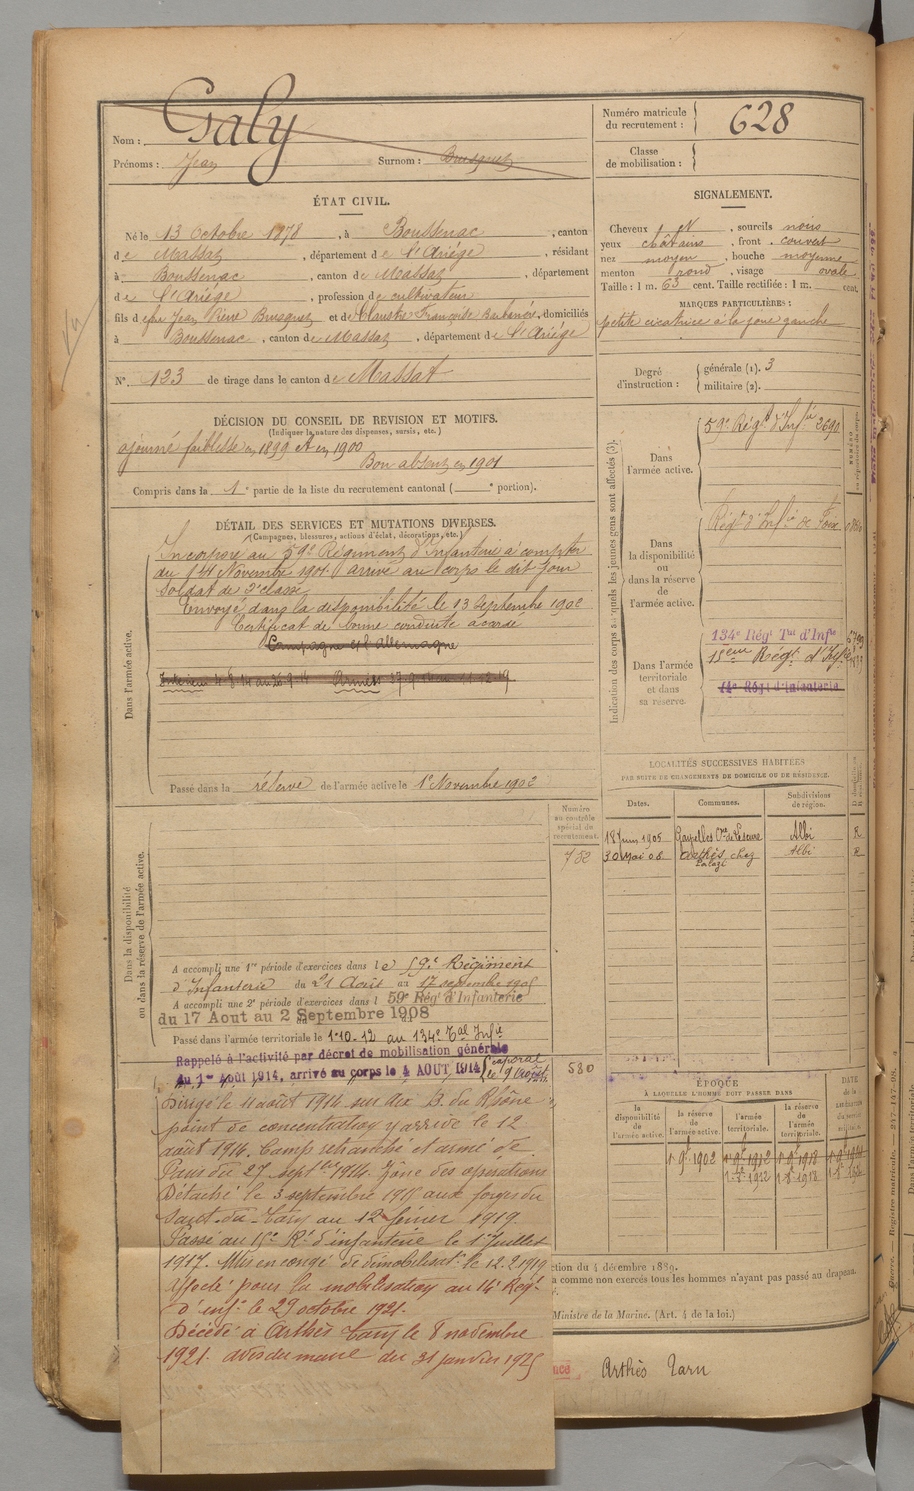 Nom : Galy
Prénoms : Jean Surnom : Busquet
Numéro matricule du recrutement : 628
Classe de mobilisation :
ÉTAT CIVIL.
Né le 13 Octobre 1878, à Boussenac, canton
de Massat, département de l'Ariége, résidant
à Boussenac, canton de Massat, département
de l'Ariége, profession de cultivateur
fils de feu Jean Pierre Busquet et de Claustre Françoise, domiciliés
à Boussenac, canton de Massat, département de l'Ariége
N° 123 de tirage dans le canton de Massat
SIGNALEMENT.
Cheveux N, sourcils noirs
yeux châtains, front couvert
nez moyen, bouche moyenne
menton rond, visage ovale
Taille : 1 m. 63 cent. Taille rectifiée : 1 m. cent.
MARQUES PARTICULIÈRES :
petite cicatrice à la joue gauche
Degré d'instruction : générale (1). 3
militaire (2).
DÉCISION DU CONSEIL DE REVISION ET MOTIFS.
(Indiquer la nature des dispenses, sursis, etc.)
ajourné faiblesse en 1899 et en 1900
Bon absent en 1901
Compris dans la 1e partie de la liste du recrutement cantonal ( e portion).
DÉTAIL DES SERVICES ET MUTATIONS DIVERSES.
(Campagnes, blessures, actions d'éclat, décorations, etc.)
Dans l'armée active.
Incorporé au 59e Régiment d'Infanterie à compter
du 14 Novembre 1901. arrivé au corps le dit jour
soldat de 2e classe
Envoyé dans la disponibilité le 13 Septembre 1902
Certificat de bonne conduite accordé
Campagne c/ l'Allemagne
Passé dans la réserve de l'armée active le 1er Novembre 1902
Indication des corps auxquels les jeunes gens sont affectés (3).
Dans l'armée active.
59e Régt d'Infie 2690
Dans la disponibilité ou dans la réserve de l'armée active.
Régt d'Infie de Foix
Dans l'armée territoriale et dans sa réserve.
134e Régt Tal d'Infie
15eme Régt d'Infie
14e Régt d'infanterie
LOCALITÉS SUCCESSIVES HABITÉES
PAR SUITE DE CHANGEMENTS DE DOMICILE OU DE RÉSIDENCE.
Dates. Communes. Subdivisions de région.
18 Juin 1905 Albi R
30 Mai 08 Arthès chez Albi R
Numéro au contrôle spécial de recrutement.
752
Dans la disponibilité ou dans la réserve de l'armée active.
A accompli une 1re période d'exercices dans le 59e Régiment
d'Infanterie du 21 Août au 17 septembre 1905
A accompli une 2e période d'exercices dans l 59e Rég d'Infanterie
du 17 Aout au 2 Septembre 1908
Passé dans l'armée territoriale le 1-10-12 au 134e Tal Infie
Rappelé à l'activité par décret de mobilisation générale
du 1er Août 1914, arrivé au corps le 4 AOUT 1914 Caporal
580
Dirigé le 11 août 1914 sur Aix B. du Rhône
point de concentration y arrive le 12
août 1914. Camp retranché et armé de
Paris du 27 septbre 1914. Zône des opérations
Détaché le 3 septembre 1915 aux forges du
Saut-du-Tarn au 12 février 1919.
Passé au 15e Rt d'infanterie le 1er Juillet
1917. Mis en congé de démobilisatn le 12.2.1919
Affecté pour la mobilisation au 14e Régt
d'infie le 29 octobre 1921.
Décédé à Arthès Tarn le 8 novembre
1921. avis du maire du 31 janvier 1925
ÉPOQUE
À LAQUELLE L'HOMME DOIT PASSER DANS
la disponibilité de l'armée active. la réserve de l'armée active. l'armée territoriale. la réserve de l'armée territoriale.
ction du 4 décembre 1889.
a comme non exercés tous les hommes n'ayant pas passé au drapeau.
Ministre de la Marine. (Art. 4 de la loi.)
Arthès Tarn